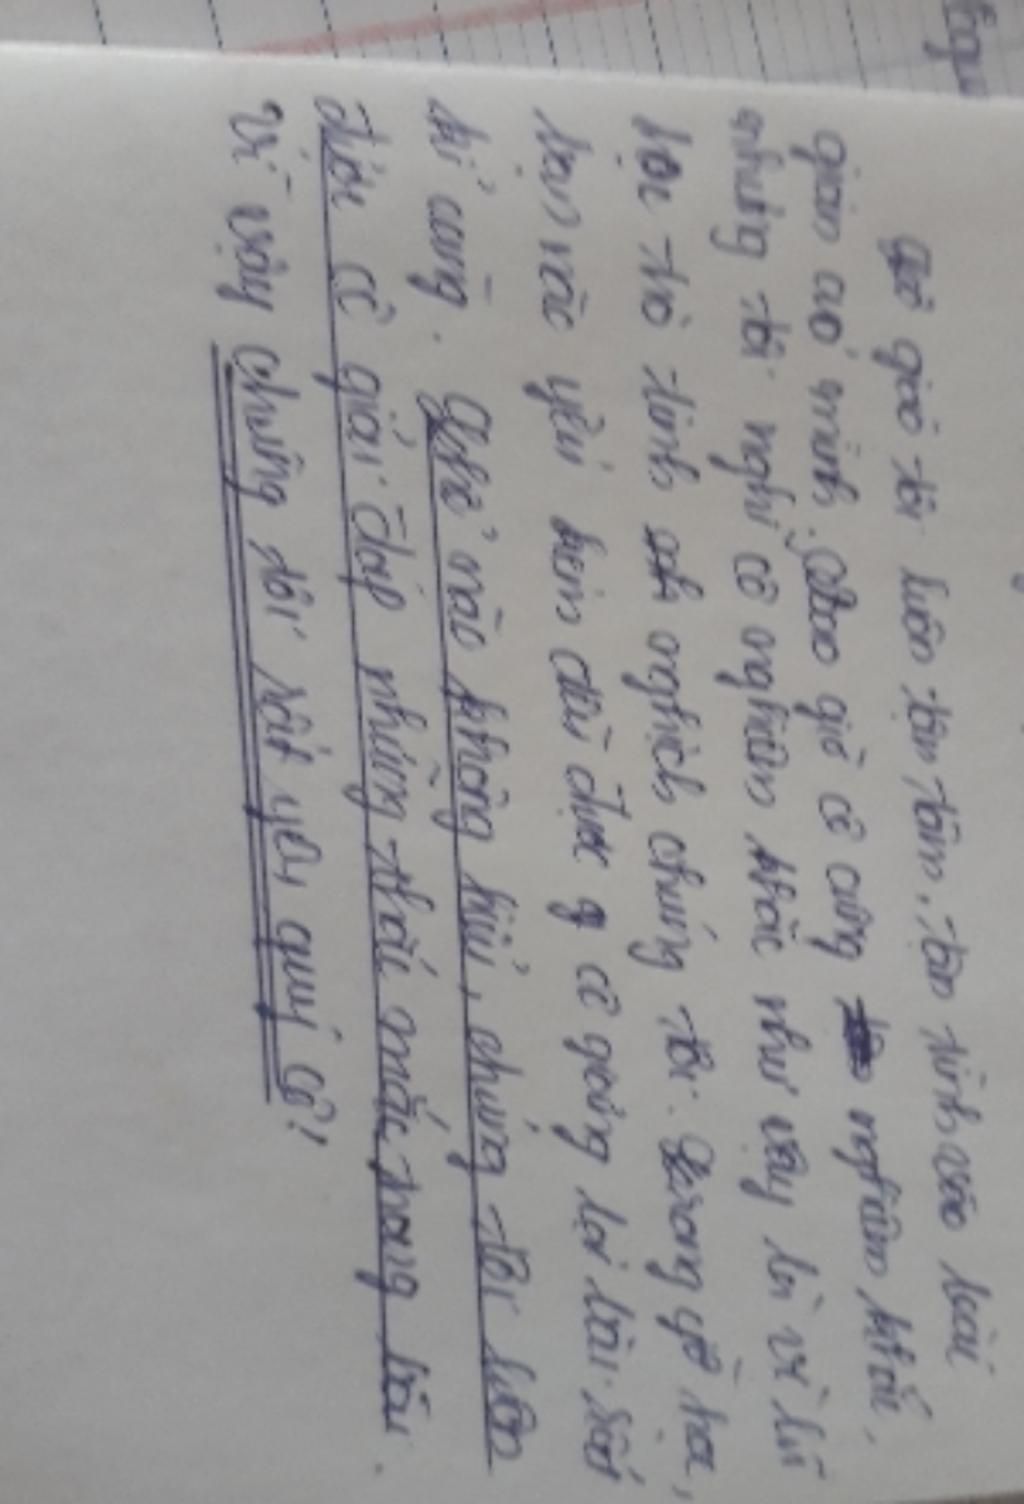 Cô giáo tôi luôn tận tâm, tận tình vào bài
giáo án mình. Cô giáo cô cũng nghiêm khắc,
nhưng tôi nghĩ cô nghiêm khắc như vậy là vì lũ
học trò tinh nghịch chúng tôi. Trong giờ học,
bạn nào yếu kém đều được cô giảng lại bài rất
kĩ càng. Chỗ nào không hiểu, chúng tôi luôn
được cô giải đáp những thắc mắc trong bài.
Vì vậy chúng tôi rất yêu quý cô!